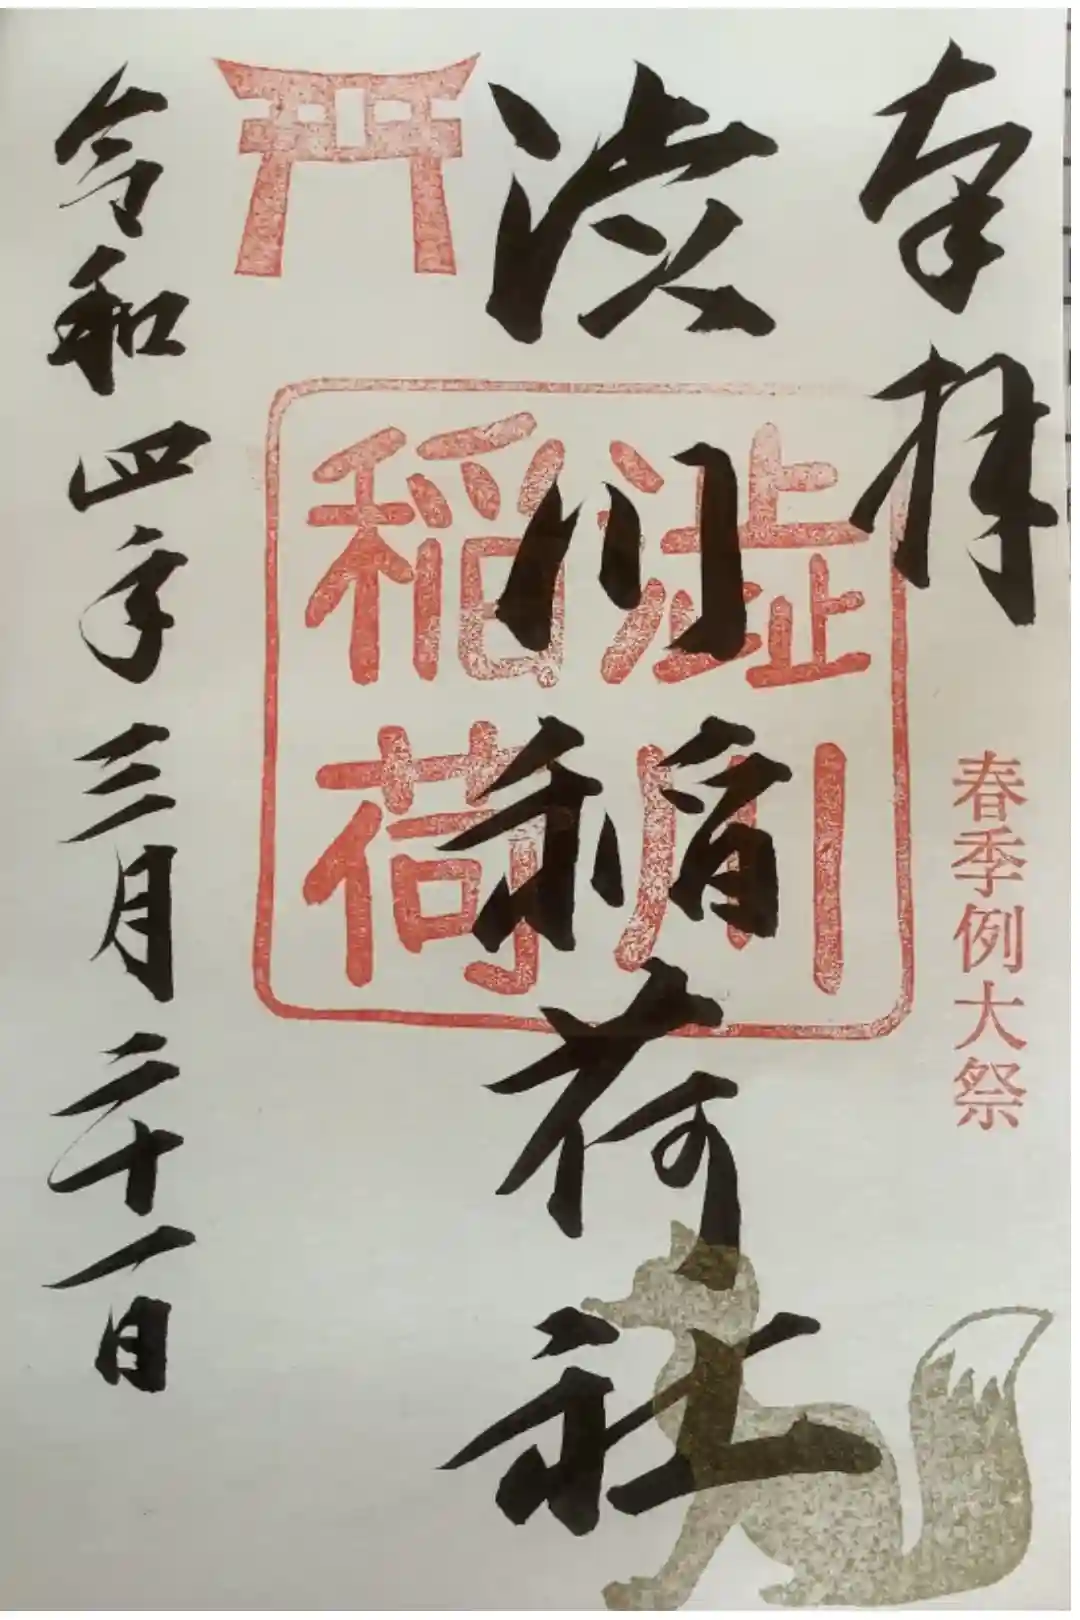 奉拝
春季例大祭
渋川稲荷社
澁川
稲荷
令和四年三月二十一日